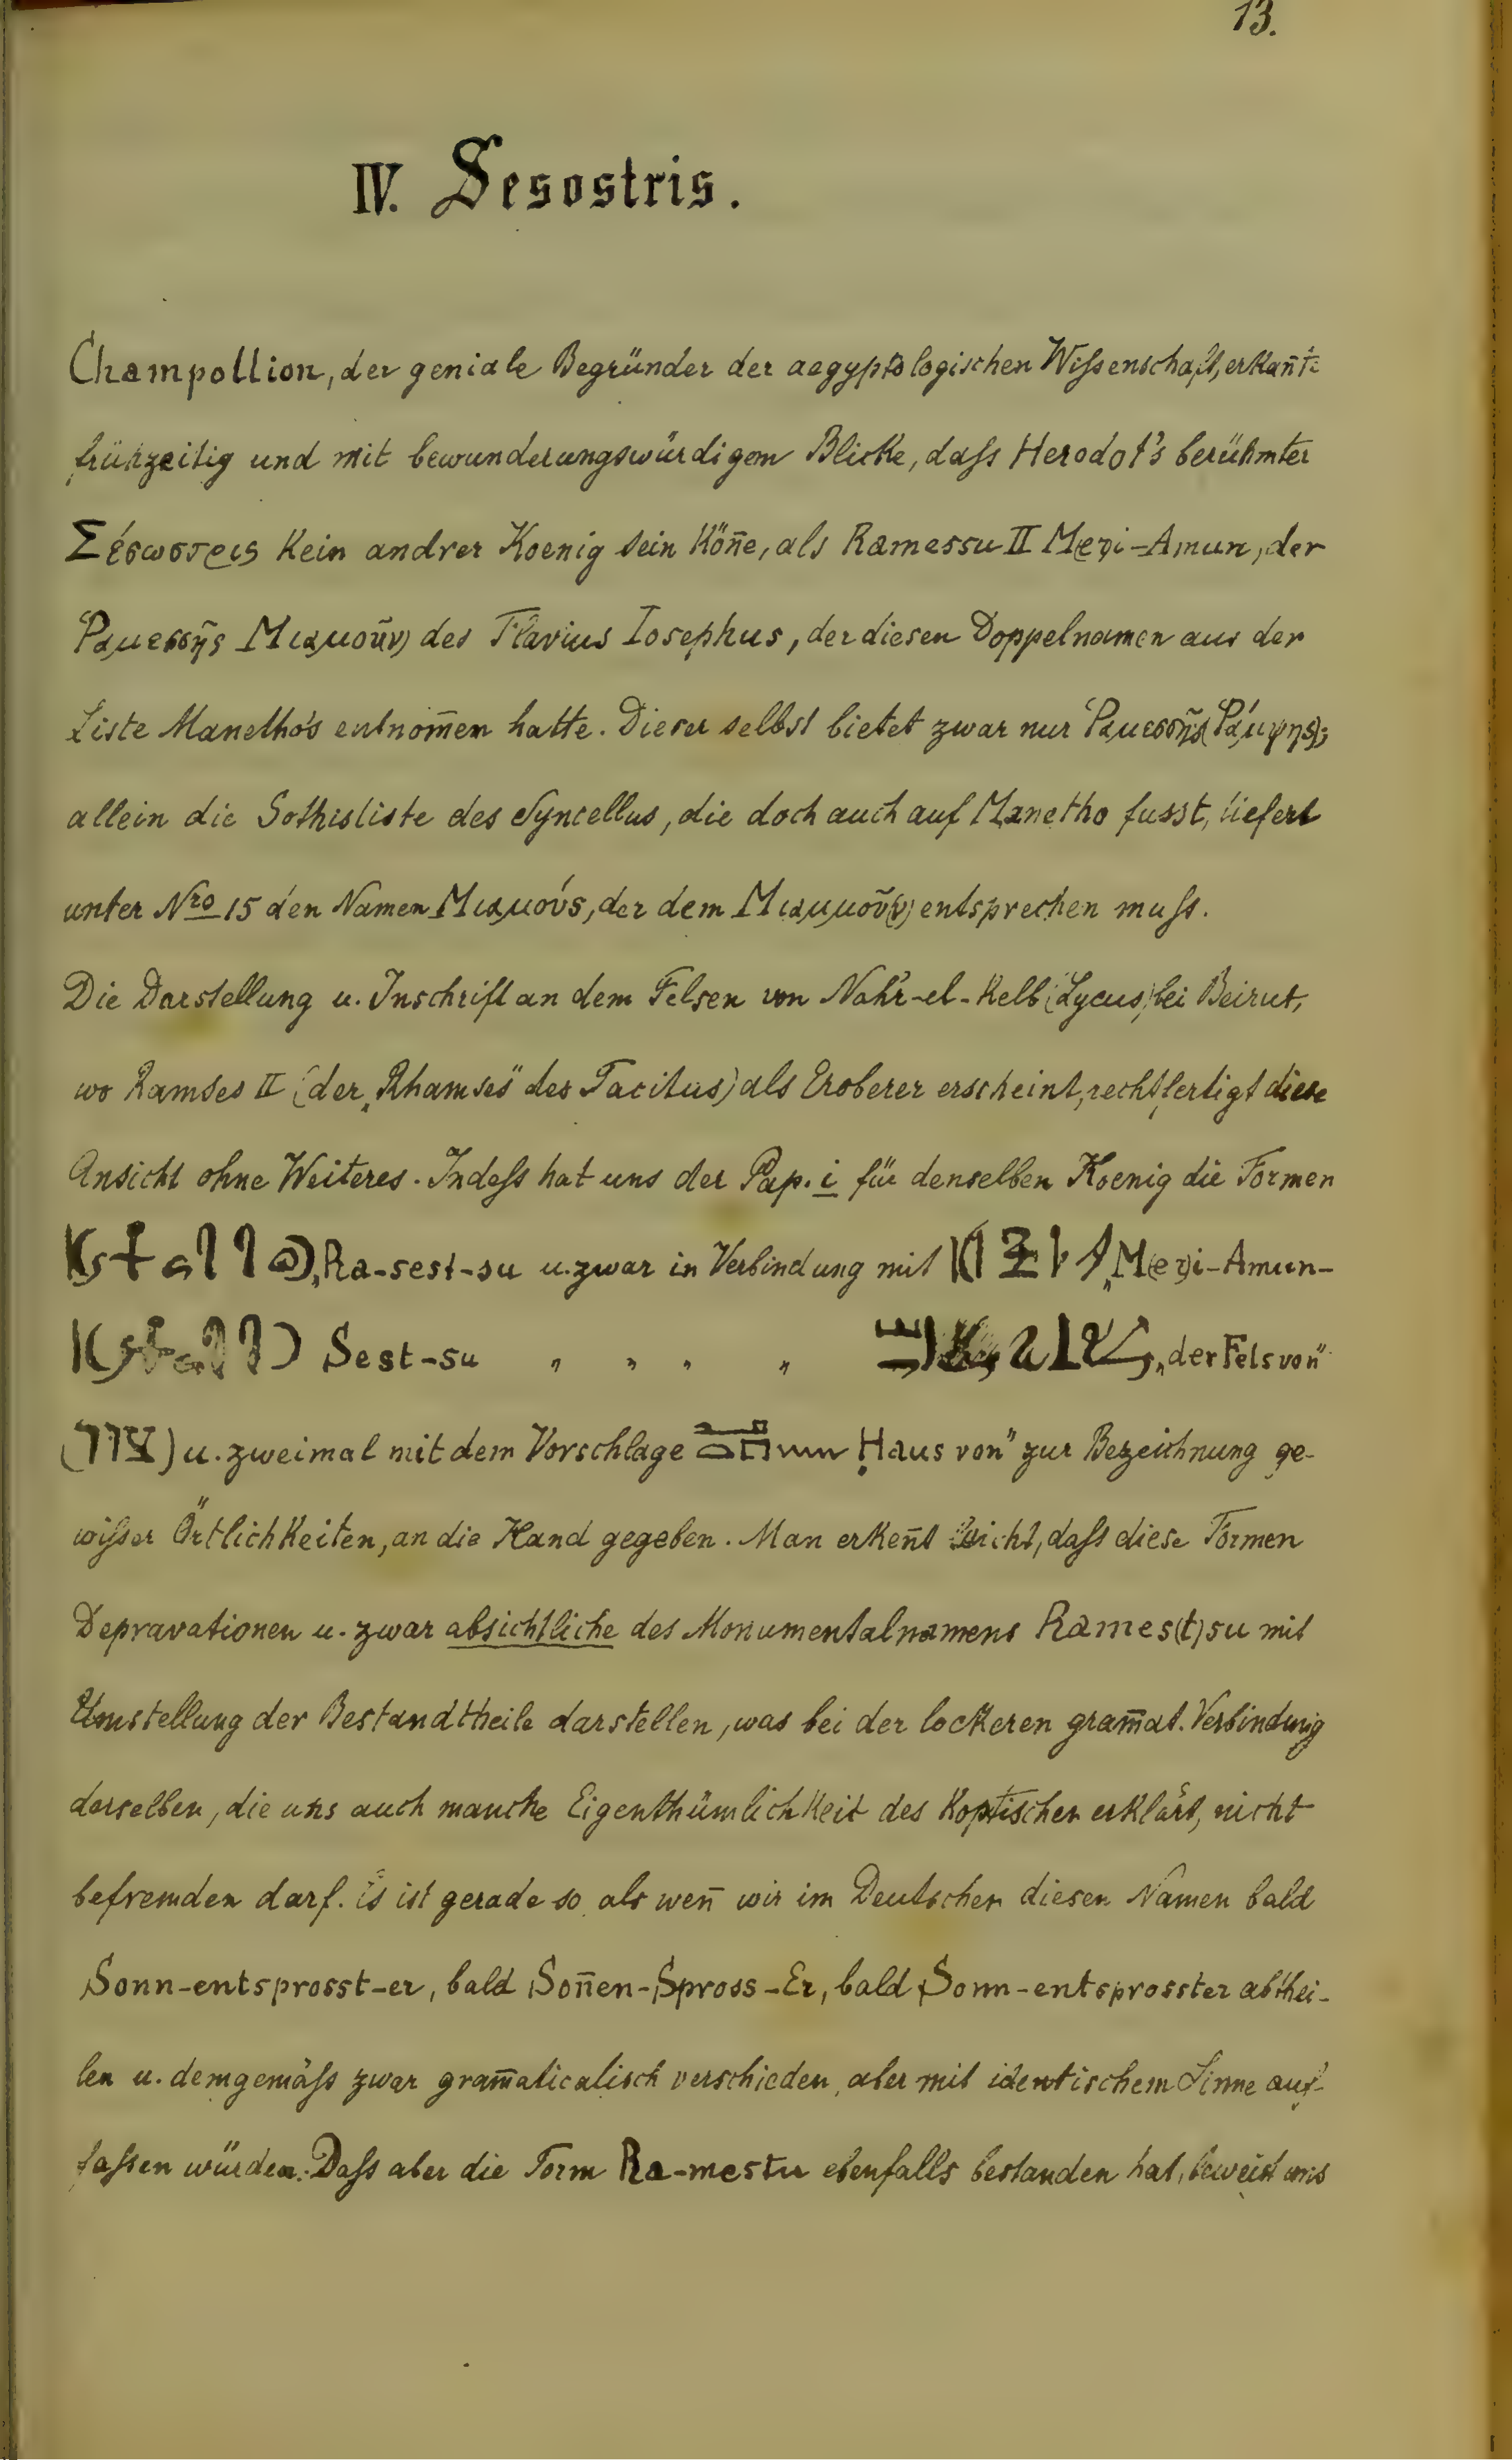 13.
IV. Sesostris.
Champollion, der geniale Begründer der aegyptologischen Wißenschaft, erkan̄te
frühzeitig und mit bewunderungswürdigem Blicke, daſs Herodot's berühmter
Σέσωστρις kein andrer Koenig sein kön̄e, als Ramessu II M(e)ri-Amun, der
Ῥαμεσσῆς Μιαμοῦν des Flavius Iosephus, der diesen Doppelnamen aus der
Liste Manetho's entnom̄en hatte. Dieser selbst bietet zwar nur Ῥαμεσσῆς (Ῥάμψης);
allein die Sothisliste des Syncellus, die doch auch auf Manetho fusst, liefert
unter Nro 15 den Namen Μιαμούς, der dem Μιαμμοῦ(ν) entsprechen muſs.
Die Darstellung u. Inschrift an dem Felsen von Nahr-el-Kelb (Lycus) bei Beirut,
wo Ramses II (der „Rhamses" des Tacitus) als Eroberer erscheint, rechtfertigt diese
Ansicht ohne Weiteres. Indeſs hat uns der Pap. i für denselben Koenig die Formen
Ra-sest-su u. zwar in Verbindung mit M(e)ri-Amun-
Sest-su „ „ „ „ „der Fels von"
u. zweimal mit dem Vorschlage „Haus von" zur Bezeichnung ge-
wiſser Örtlichkeiten, an die Hand gegeben. Man erken̄t leicht, daſs diese Formen
Depravationen u. zwar absichtliche des Monumentalnamens Rames(t)su mit
Umstellung der Bestandtheile darstellen, was bei der lockeren gram̄at. Verbindung
derselben, die uns auch manche Eigenthümlichkeit des Koptischen erklärt, nicht
befremden darf. Es ist gerade so als wen̄ wir im Deutschen diesen Namen bald
Sonn-entsprosst-er, bald Son̄en-Spross-Er, bald Sonn-entsprosster abthei-
len u. demgemäſs zwar gram̄aticalisch verschieden, aber mit identischem Sinne auf-
faſsen würden. Daſs aber die Form Ra-mestu ebenfalls bestanden hat, beweist uns